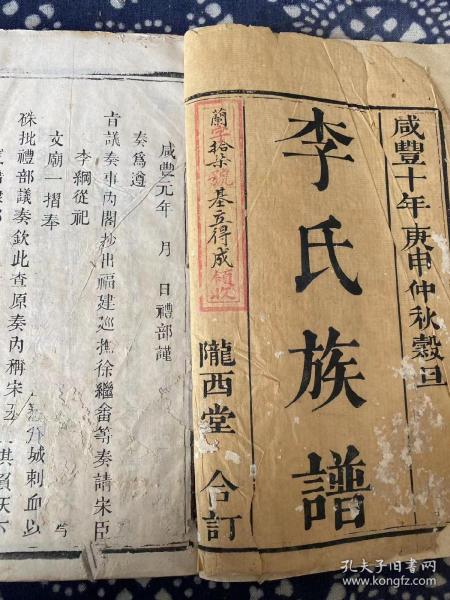 咸豐十年庚申仲秋穀旦
李氏族譜
蘭字拾柒號基立得成領收
隴西堂 合訂
咸豐元年 月 日禮部謹
奏為遵
旨議奏事內閣抄出福建巡撫徐繼畬等奏請宋臣
李綱從祀
文廟一摺奉
硃批禮部議奏欽此查原奏內稱宋
城刺血以
孔夫子旧书网
www.kongfz.com